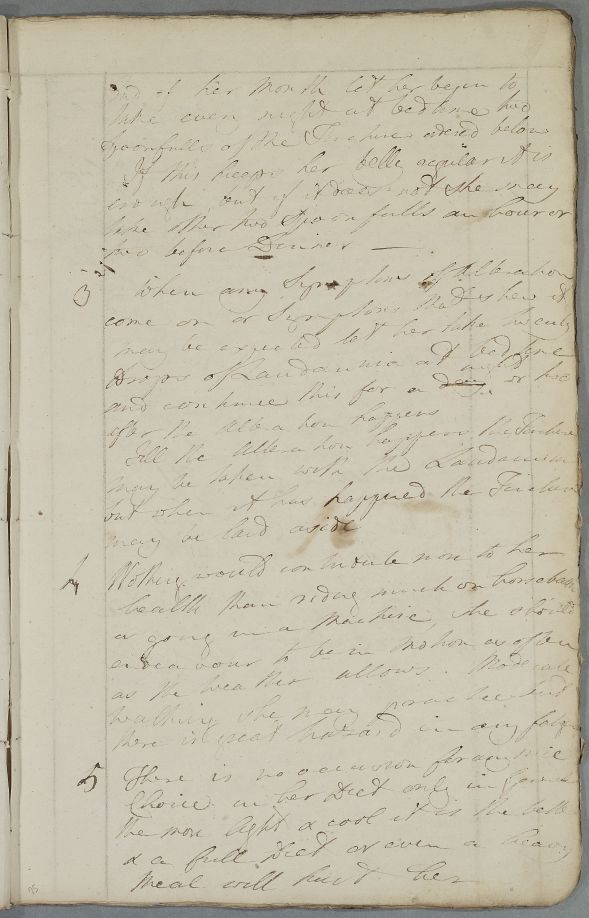 end of her Month let her begin to
take every night at bedtime two
Spoonfulls of the Tincture ordered below
If this keeps her belly regular it is
enough, but if it does not she may
take other two Spoonfulls an hour or
two before Dinner —
3 When any Symptoms of Alteration
come on or Symptoms that shew it
may be expected let her take twenty
drops of Laudanum at bed time
and continue this for a night or two
after the Alteration happens
Till the Alteration happens the Tincture
may be taken with the Laudanum
but when it has happened the Tincture
may be laid aside
4 Nothing would contribute more to her
health than riding much on horseback
or going in a Machine, she should
endeavour to be in motion as often
as the weather allows. Moderate
walking she may practise but
there is great hazard in any fatigue
5 There is no occasion for any nice
Choice in her Diet only in General
the more light & cool it is the better
& a full Diet or even a heavy
meal will hurt her